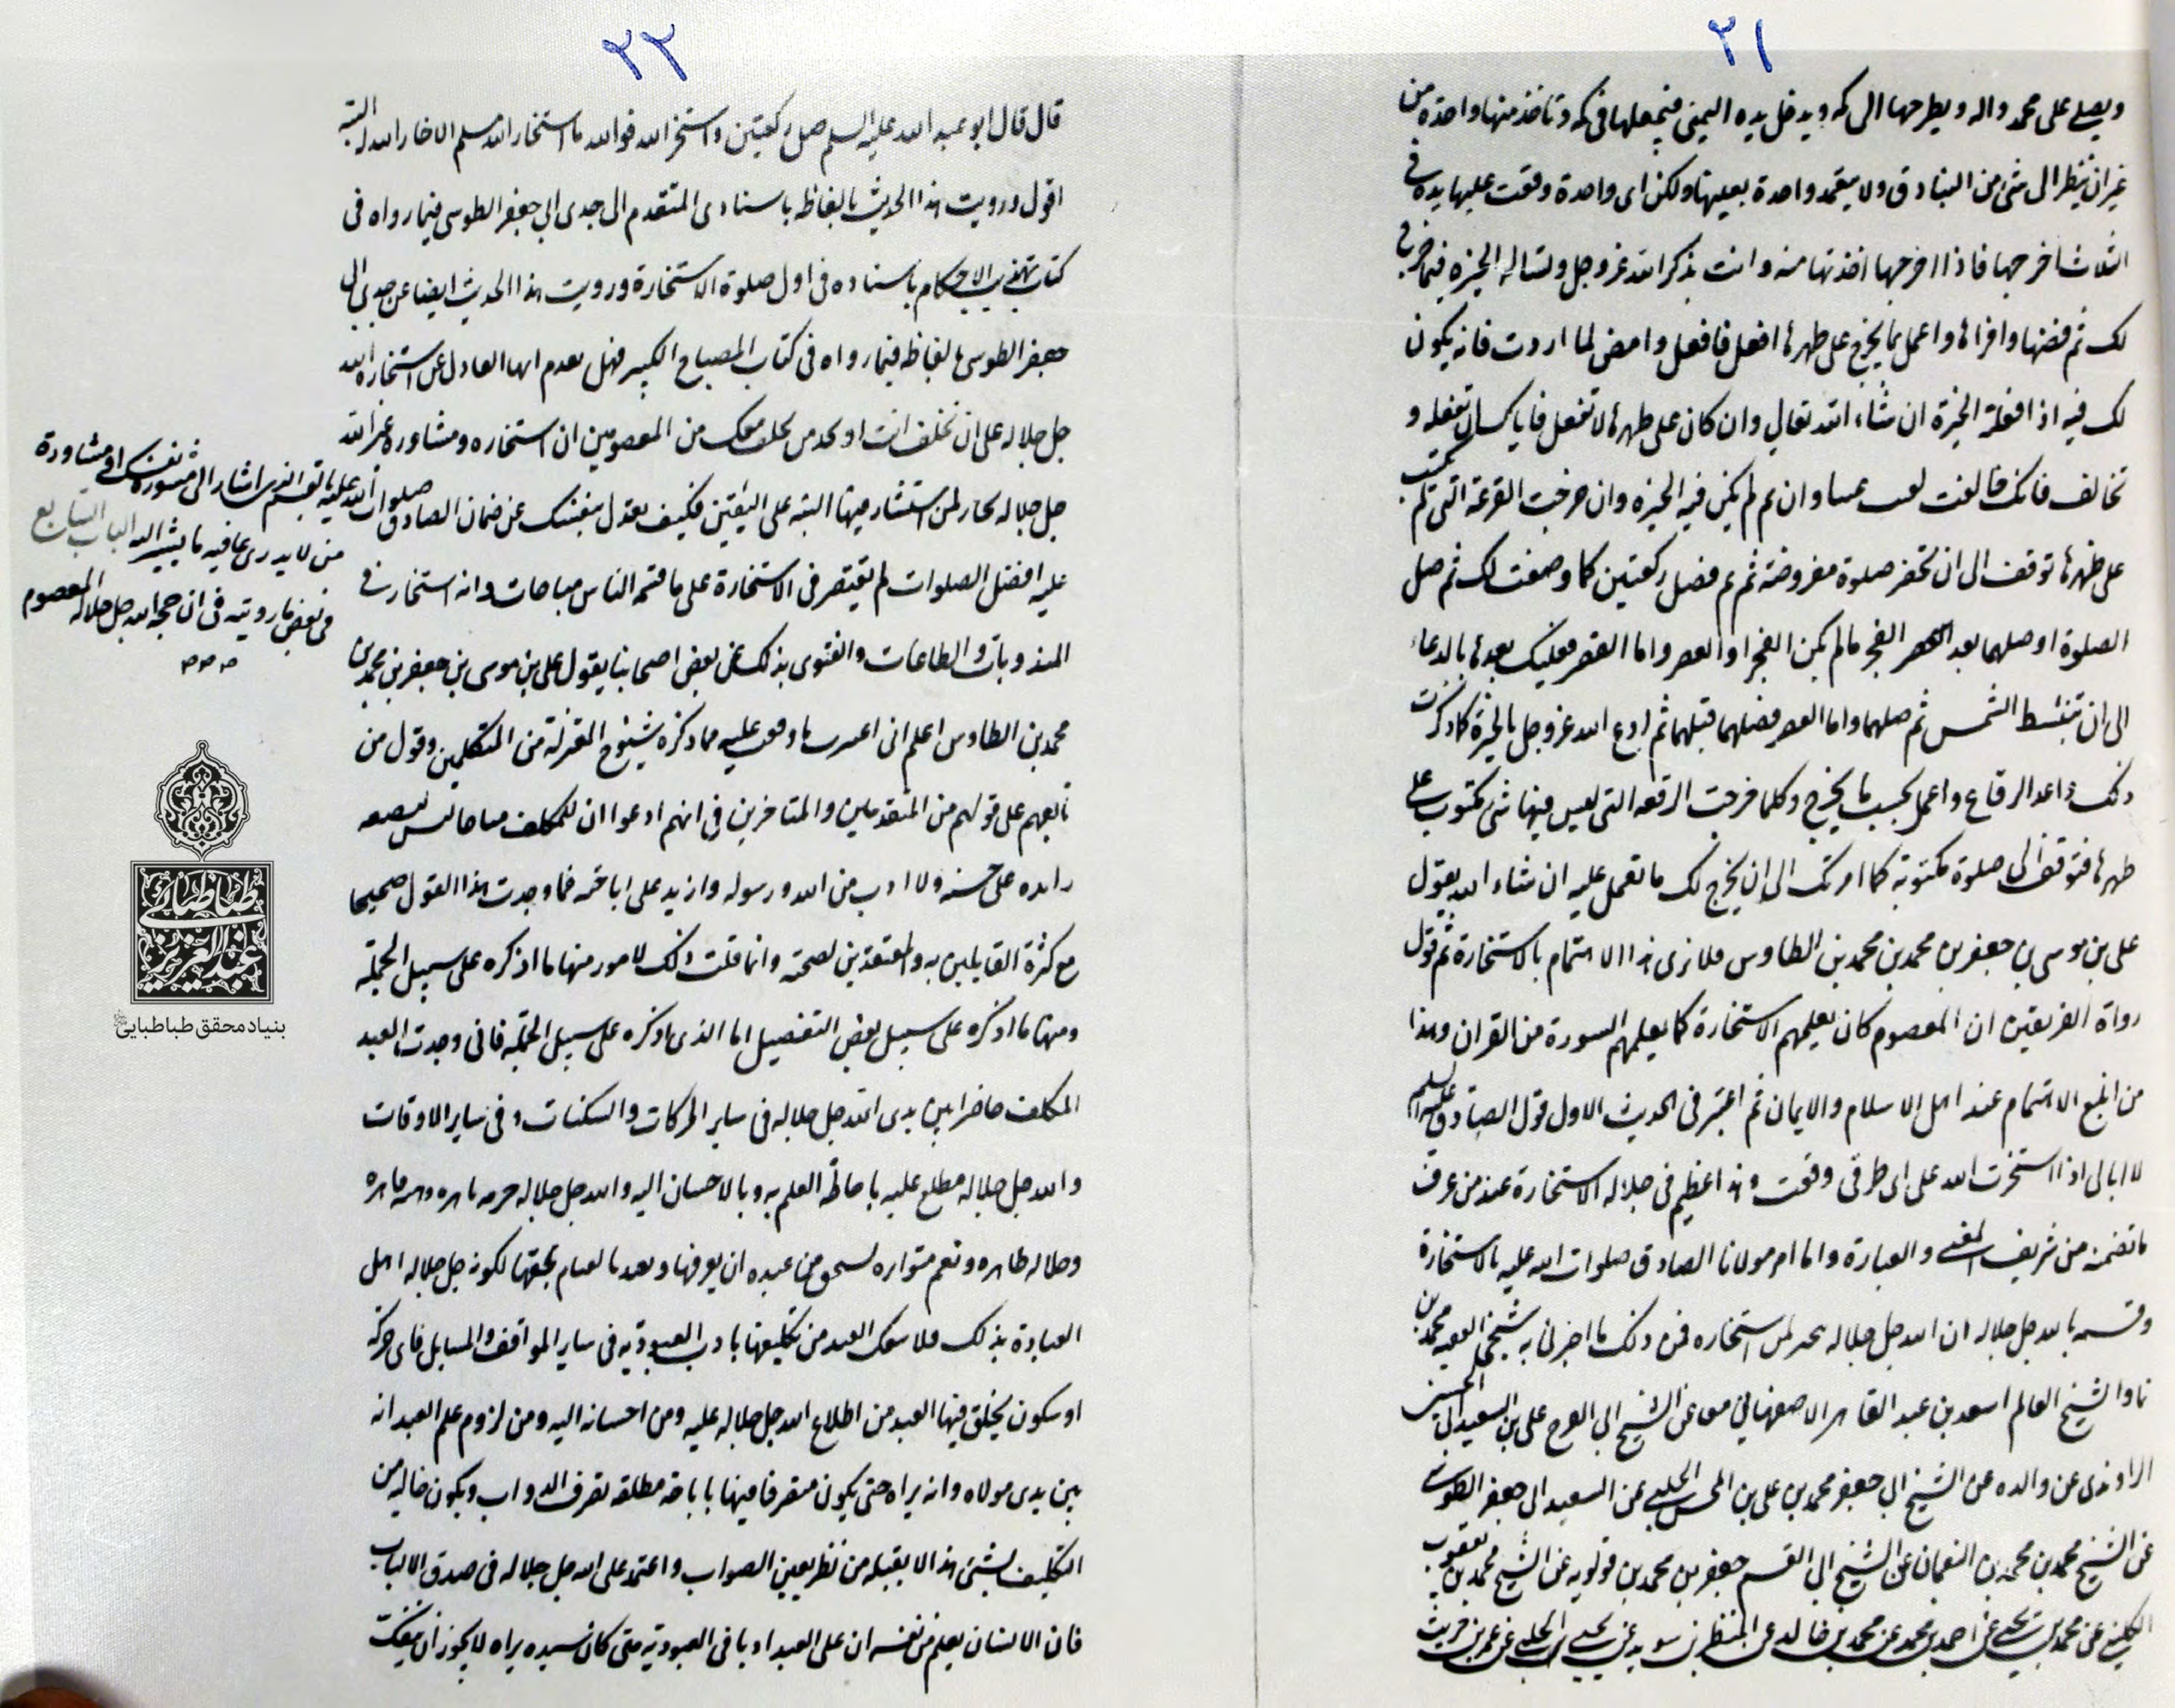 ٢١
ويصلي على محمد واله ويطرحها الى كمه ويدخل يده اليمنى فيجعلها فى كمه وتاخذ منها واحدة من
غير ان ينظر الى شئ من البنادق ولا يتعمد واحدة بعينها ولكن اى واحدة وقعت عليها يده فى
الثلاث اخرجها فاذا اخرجها اخذتها منه وانت بذكر الله عز وجل وتساله الخيرة فيما خرج
لك ثم فضها واقراها واعمل بما يخرج على ظهرها افعل فافعل وامض لما اردت فانه يكون
لك فيه اذا فعلته الخيرة ان شاء الله تعالى وان كان على ظهرها لا تفعل فاياك ان تفعله و
تخالف فانك خالفت لم يكن فيه الخيره وان خرجت الرقعة التى لم تكتب
على ظهرها توقف الى ان تحضر صلوة مفروضة ثم قم فصل ركعتين كما وصفت لك ثم صل
الصلوة او صلهما بعد الفجر مالم يكن الفجر او العصر واما الفجر فعليك بعدها بالدعاء
الى ان تنبسط الشمس ثم صلهما واما العصر فصلهما قبلهما ثم ادع الله عز وجل بالخيرة كما ذكرت
لك واعد الرقاع واعمل بحسب ما يخرج وكلما خرجت الرقعه التى ليس فيها شئ مكتوب على
ظهرها فتوقف الى صلوة مكتوبة كما امرتك الى ان يخرج لك ما تعمل عليه ان شاء الله يقول
على بن موسى بن جعفر بن محمد بن محمد بن الطاوس فلا نرى هذا الاهتمام بالاستخارة ثم قول
رواة الفريقين ان المعصوم كان يعلمهم الاستخارة كما يعلمهم السورة من القران وهذا
من ابلغ الاهتمام عند اهل الاسلام والايمان ثم اعتبر فى الحديث الاول قول الصادق عليه السلم
لا ابالى اذا استخرت الله على اى طرفى وقعت وهذا عظيم فى جلاله الاستخارة عند من عرف
ما تضمنه من شريف المعنى والعبارة واما امر مولانا الصادق صلوات الله عليه بالاستخارة
وقسمه بالله جل جلاله ان الله جل جلاله يخير لمن استخاره فمن ذلك ما اخبرنى به شيخى الفقيه محمد بن
نما والشيخ العالم اسعد بن عبد القاهر الاصفهاني معا عن الشيخ ابى الفرج على بن السعيد ابى الحسين
الراوندى عن والده عن الشيخ ابى جعفر محمد بن على بن المحسن الحلبى عن السعيد ابى جعفر الطوسى
عن الشيخ محمد بن محمد بن النعمان عن الشيخ ابى القسم جعفر بن محمد بن قولويه عن الشيخ محمد بن يعقوب
الكلينى عن محمد بن يحيى عن احمد بن محمد عن محمد بن خالد عن النضر بن سويد عن يحيى الحلبى عن عمرو بن حريث
٢٢
قال قال ابو عبد الله عليه السلم صل ركعتين واستخر الله فوالله ما استخار الله مسلم الا خار الله له البتة
اقول ورويت هذا الحديث بالفاظه باسنادى المتقدم الى جدى ابى جعفر الطوسى فيما رواه فى
كتاب تهذيب الاحكام باسناده فى اول صلوة الاستخارة ورويت هذا الحديث ايضا عن جدى ابى
جعفر الطوسى بالفاظه فيما رواه فى كتاب المصباح الكبير فهل يقدم ايها العادل عن استخارة الله
جل جلاله على ان تحلف انت او احد ممن يحلف معك من المعصومين ان استخاره ومشاوره غير الله
جل جلاله يخار لمن استشار فيها البتة على اليقين فكيف تعدل بنفسك عن ضمان الصادق
صلوات الله عليه بالقسم الذى اشار الى مشورة نفسك او مشاورة
من لا يدرى عاقبه ما يشير اليه الباب السابع
فى بعض ما رويته فى ان حجة الله جل جلاله المعصوم
عليه افضل الصلوات لم يقتصر فى الاستخارة على ما قسمه الناس مباحات وانه استخار فى
المندوبات والطاعات والفتوى بذلك عن بعض اصحابنا يقول على بن موسى بن جعفر بن محمد بن
محمد بن الطاوس اعلم انى اعتبرت ما وقفت عليه مما ذكره شيوخ المعتزلة من المتكلمين وقول من
تابعهم على قولهم من المتقدمين والمتاخرين فى انهم ادعوا ان للمكلف مباحا ليس له صفه
زايده على حسنه ولا ادب من الله ورسوله وازيد على اباحته فما وجدت هذا القول صحيحا
مع كثرة القايلين به والمعتقدين لصحته وانما قلت ذلك لامور منها ما اذكره على سبيل الجملة
ومنها ما اذكره على سبيل بعض التفصيل اما الذى اذكره على سبيل الجملة فانى وجدت العبد
المكلف حاضرا بين يدى الله جل جلاله فى ساير الحركات والسكنات وفى ساير الاوقات
والله جل جلاله مطلع عليه باحاطة العلم به وبالاحسان اليه ولله جل جلاله حرمه باهره وهيبه قاهره
وجلاله ظاهره ونعم متواتره يستحق من عبده ان يعرفها ويعبده بالقيام بحقها لكونه جل جلاله اهل
العبادة بذلك فلا ينفك العبد من تكليفها بادب العبودية فى ساير المواقف والمسايل فاى حركة
او سكون يخلق فيها العبد من اطلاع الله جل جلاله عليه ومن احسانه اليه ومن لزوم علم العبد انه
بين يدى مولاه وانه يراه حتى يكون متصرفا فيها باباحه مطلقه تصرف الدواب ويكون خاليه من
التكليف بشئ هذا لا يقبله من نظر بعين الصواب واعتمد على الله جل جلاله فى صدق الالباب
فان الانسان يعلم من نفسه ان على العبد ادبا فى العبودية متى كان سيده يراه لا يجوز ان ينفك
طباطبائى
عبدالعزيز
بنیاد محقق طباطبایی